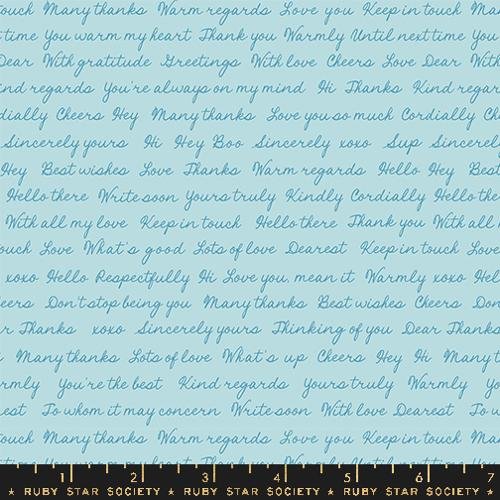 ouch Many thanks Warm regards Love you Keep in touch Ma
time You warm my heart Thank you Warmly Until next time You
Dear With gratitude Greetings With love Cheers Love Dear Wit
nd regards You're always on my mind Hi Thanks Kind regar
dially Cheers Hey Many thanks Love you so much Cordially Ch
Sincerely yours Hi Hey Boo Sincerely xoxo Sup Sincerel
Hey Best wishes Love Thanks Warm regards Hello Hey Best
Hello there Write soon Yours truly Kindly Cordially Hello the
With all my love Keep in touch Hello there Thank you With all
ouch Love What's good Lots of love Dearest Keep in touch Love
xoxo Hello Respectfully Hi Love you, mean it Warmly xoxo Hel
eers Don't stop being you Many thanks Best wishes Cheers Don
r Thanks xoxo Sincerely yours Thinking of you Dear Thanks
Many thanks Lots of love What's up Cheers Hey Hi Many t
rmly You're the best Kind regards Yours truly Warmly Yo
est To whom it may concern Write soon With love Dearest To w
ouch Many thanks Warm regards Love you Keep in touch Ma
1 2 3 4 5 6 7
★ RUBY STAR SOCIETY ★ RUBY STAR SOCIETY ★ RUBY STAR SOCIETY ★